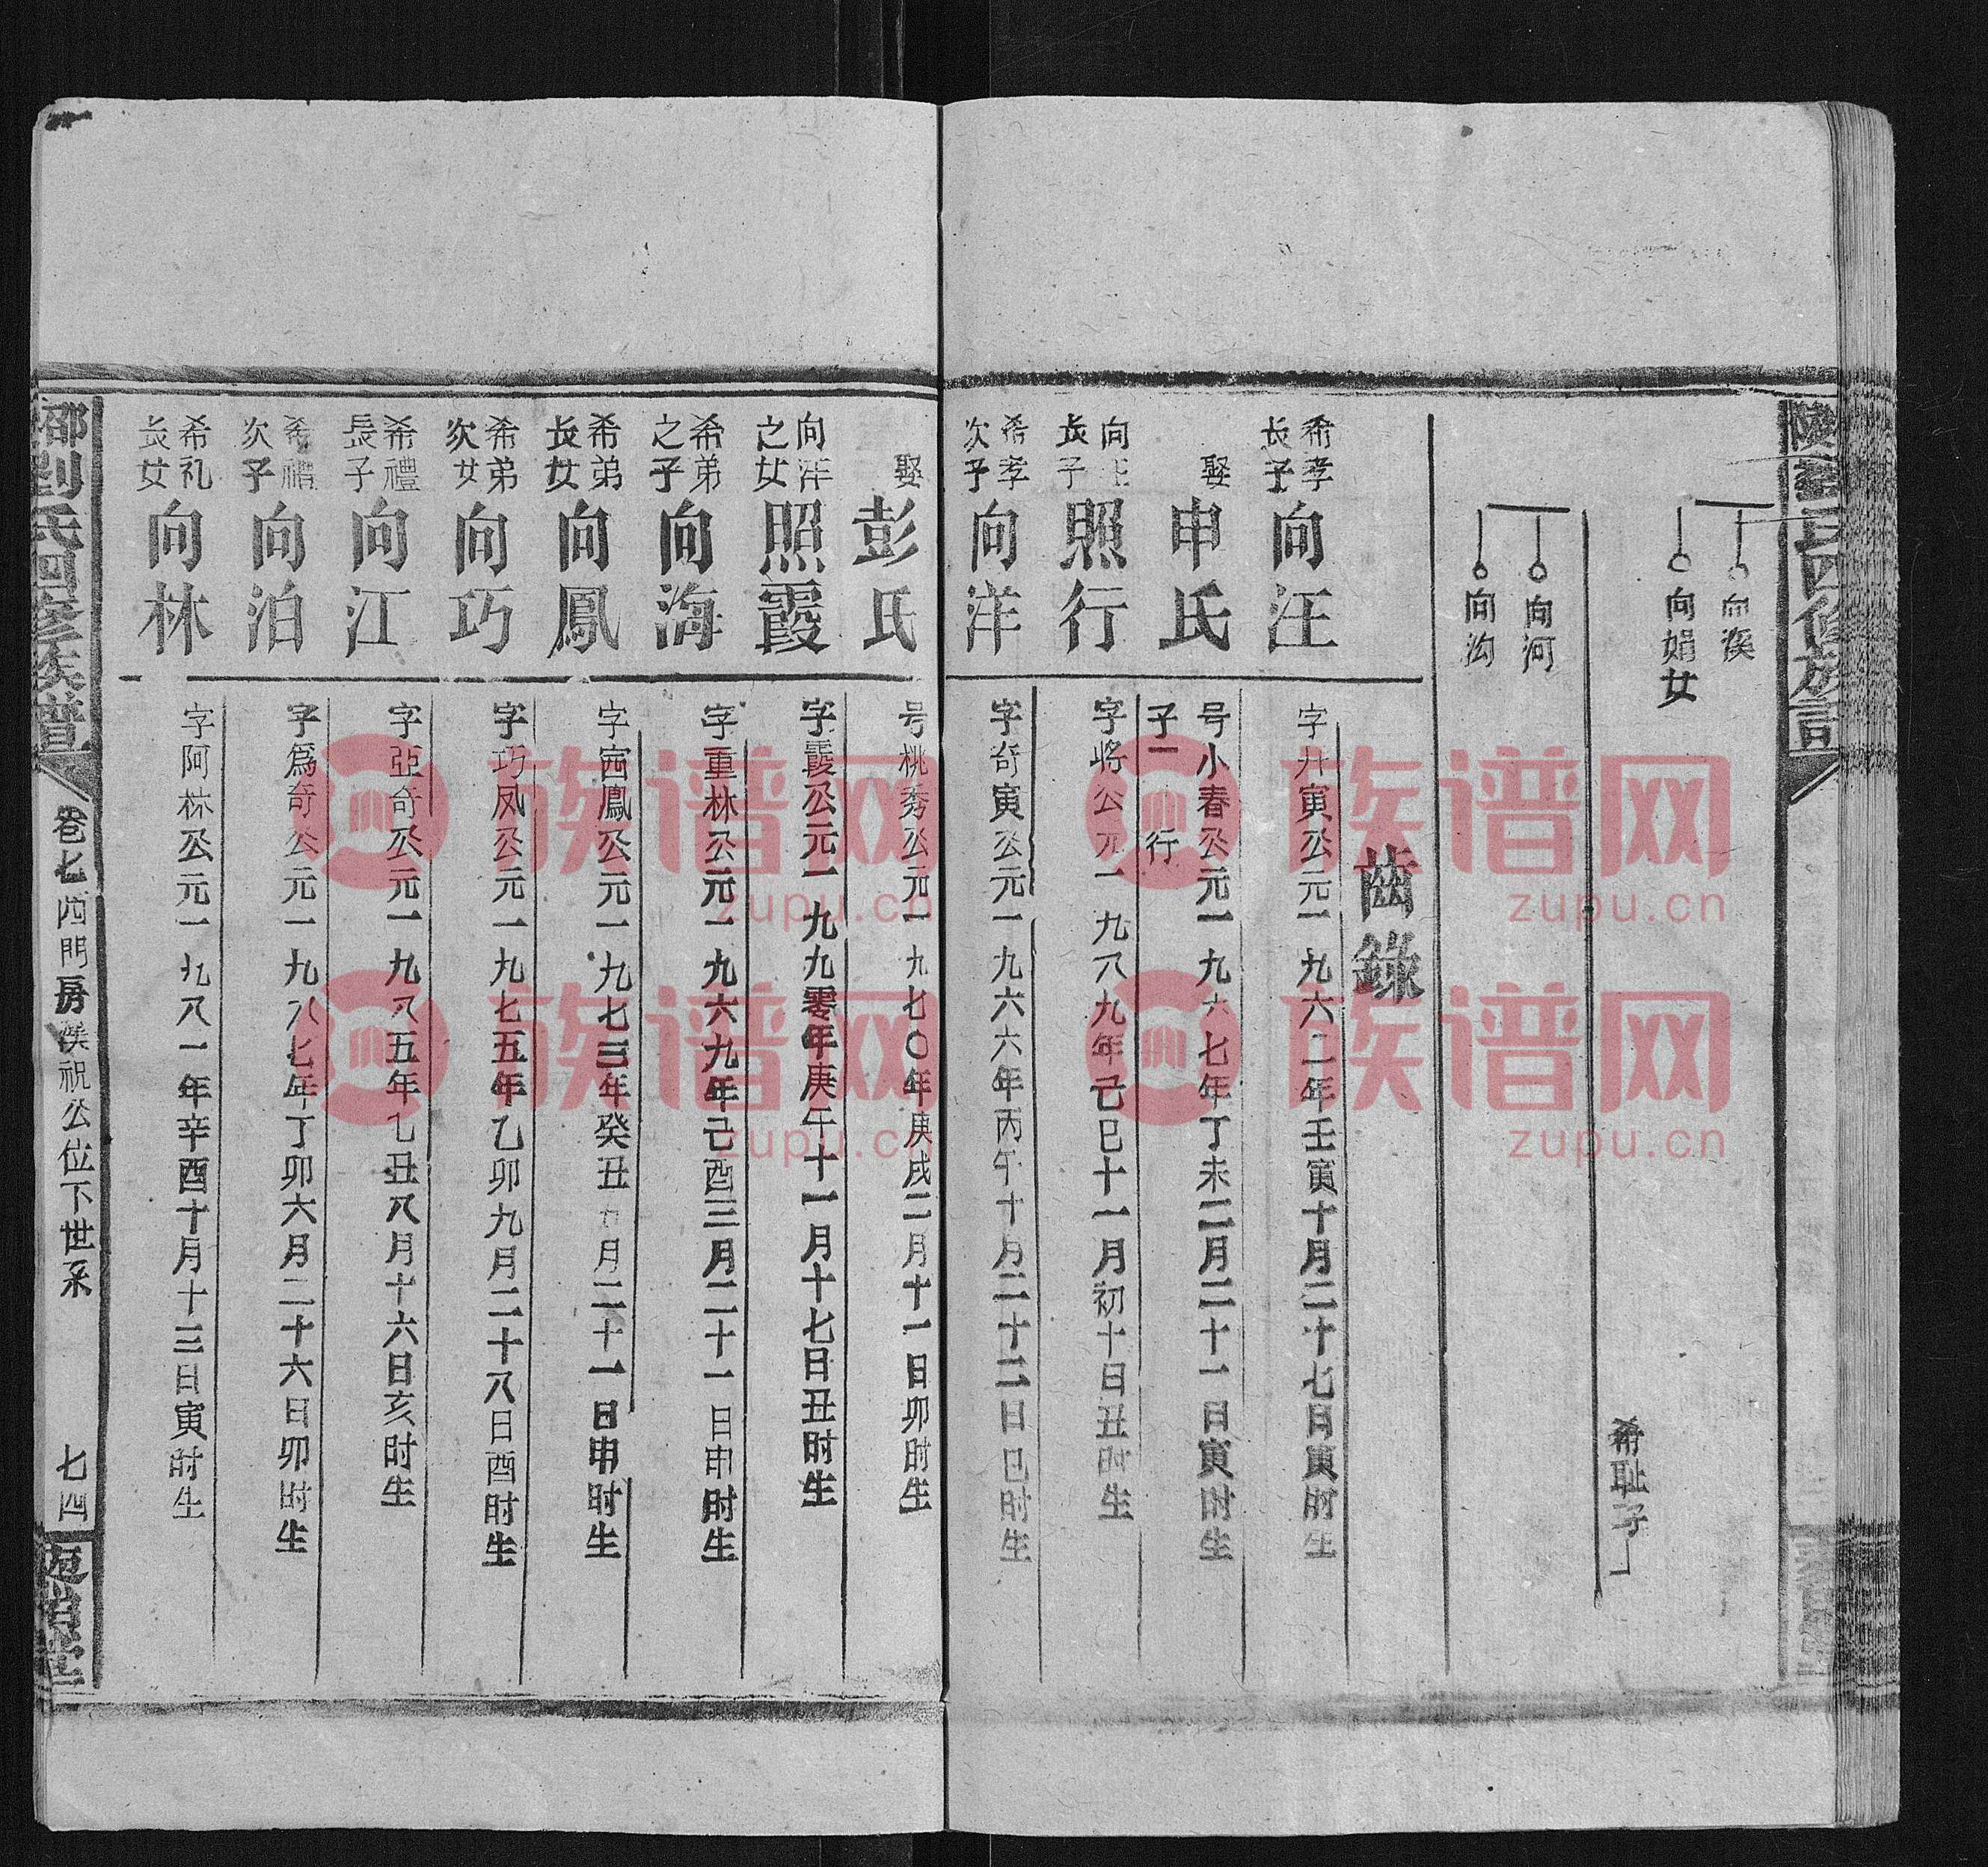 向溪
向娟女
希耻子
向河
向沟
齒錄
希孝長子 向汪 字升寅公元一九六二年壬寅十月二十七日寅时生
娶 申氏 号小春公元一九六七年丁未二月二十一日寅时生
子一 行
向汪長子 照行 字将公元一九八九年己巳十一月初十日丑时生
希孝次子 向洋 字奇寅公元一九六六年丙午十月二十二日巳时生
娶 彭氏 号桃秀公元一九七〇年庚戌二月十一日卯时生
向洋之女 照霞 字霞公元一九九零年庚午十一月十七日丑时生
希弟之子 向海 字重林公元一九六九年己酉三月二十一日申时生
希弟長女 向鳳 字茜鳳公元一九七三年癸丑 月二十一日申时生
希弟次女 向巧 字巧凤公元一九七五年乙卯九月二十八日酉时生
希禮長子 向江 字亞奇公元一九八五年乜丑八月十六日亥时生
希禮次子 向泊 字爲奇公元一九八七年丁卯六月二十六日卯时生
希礼長女 向林 字阿林公元一九八一年辛酉十月十三日寅时生
邵劉氏四修族譜
卷七四門房漢祝公位下世系
七四
族谱网
zupu.cn
族谱网
zupu.cn
族谱网
zupu.cn
族谱网
zupu.cn